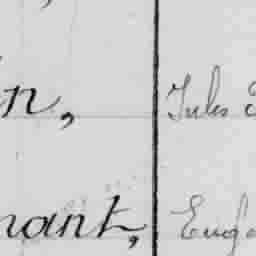 in, Jules
nant, Euge